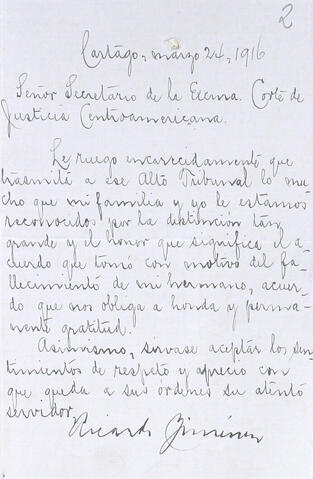 2
Cartago, marzo 24, 1916
Señor Secretario de la Excma. Corte de
Justicia Centroamericana.
Le ruego encarecidamente que
trasmita a ese Alto Tribunal lo mu
cho que mi familia y yo le estamos
reconocidos por la distinción tan
grande y el honor que significa el a-
cuerdo que tomó con motivo del fa-
llecimiento de mi hermano, acuer-
do que nos obliga a honda y perma-
nente gratitud.
Asimismo, sírvase aceptar los sen-
timientos de respeto y aprecio con
que queda a sus órdenes su atento
servidor
Ricardo Jiménez